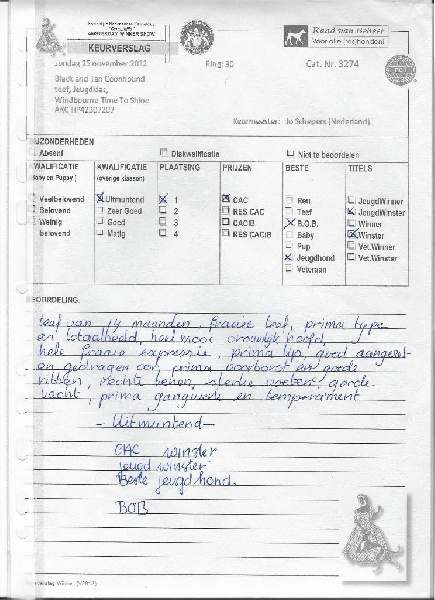 AMSTERDAM WINNER SHOW
KEURVERSLAG
Raad van Beheer
Zondag 25 november 2012
Ring: 30
Cat. Nr. 3274
Black and Tan Coonhound
teef, Jeugdklas,
Windbourne Time To Shine
AKC HP42307207
Keurmeester: Jo Schepers (Nederland)
BIJZONDERHEDEN
Absent
Diskwalificatie
Niet te beoordelen
KWALIFICATIE
(Baby en Puppy)
KWALIFICATIE
(overige klassen)
PLAATSING
PRIJZEN
BESTE
TITELS
Veelbelovend
Belovend
Weinig
belovend
Uitmuntend
Zeer Goed
Goed
Matig
1
2
3
4
CAC
RES CAC
CACIB
RES CACIB
Reu
Teef
B.O.B.
Baby
Pup
Jeugdhond
Veteraan
JeugdWinner
JeugdWinster
Winner
Winster
Vet.Winner
Vet.Winster
BEOORDELING:
teef van 14 maanden, fraaie teef, prima type
en totaalbeeld, heel mooi vrouwelijk hoofd,
hele fraaie expressie, prima lip, goed aangezet
en gedragen oor, prima voorborst en goede
ribben, rechte benen, sterke voeten, goede
vacht, prima gangwerk en temperament
- Uitmuntend -
CAC winster
jeugd winster
Beste jeugdhond.
BOB